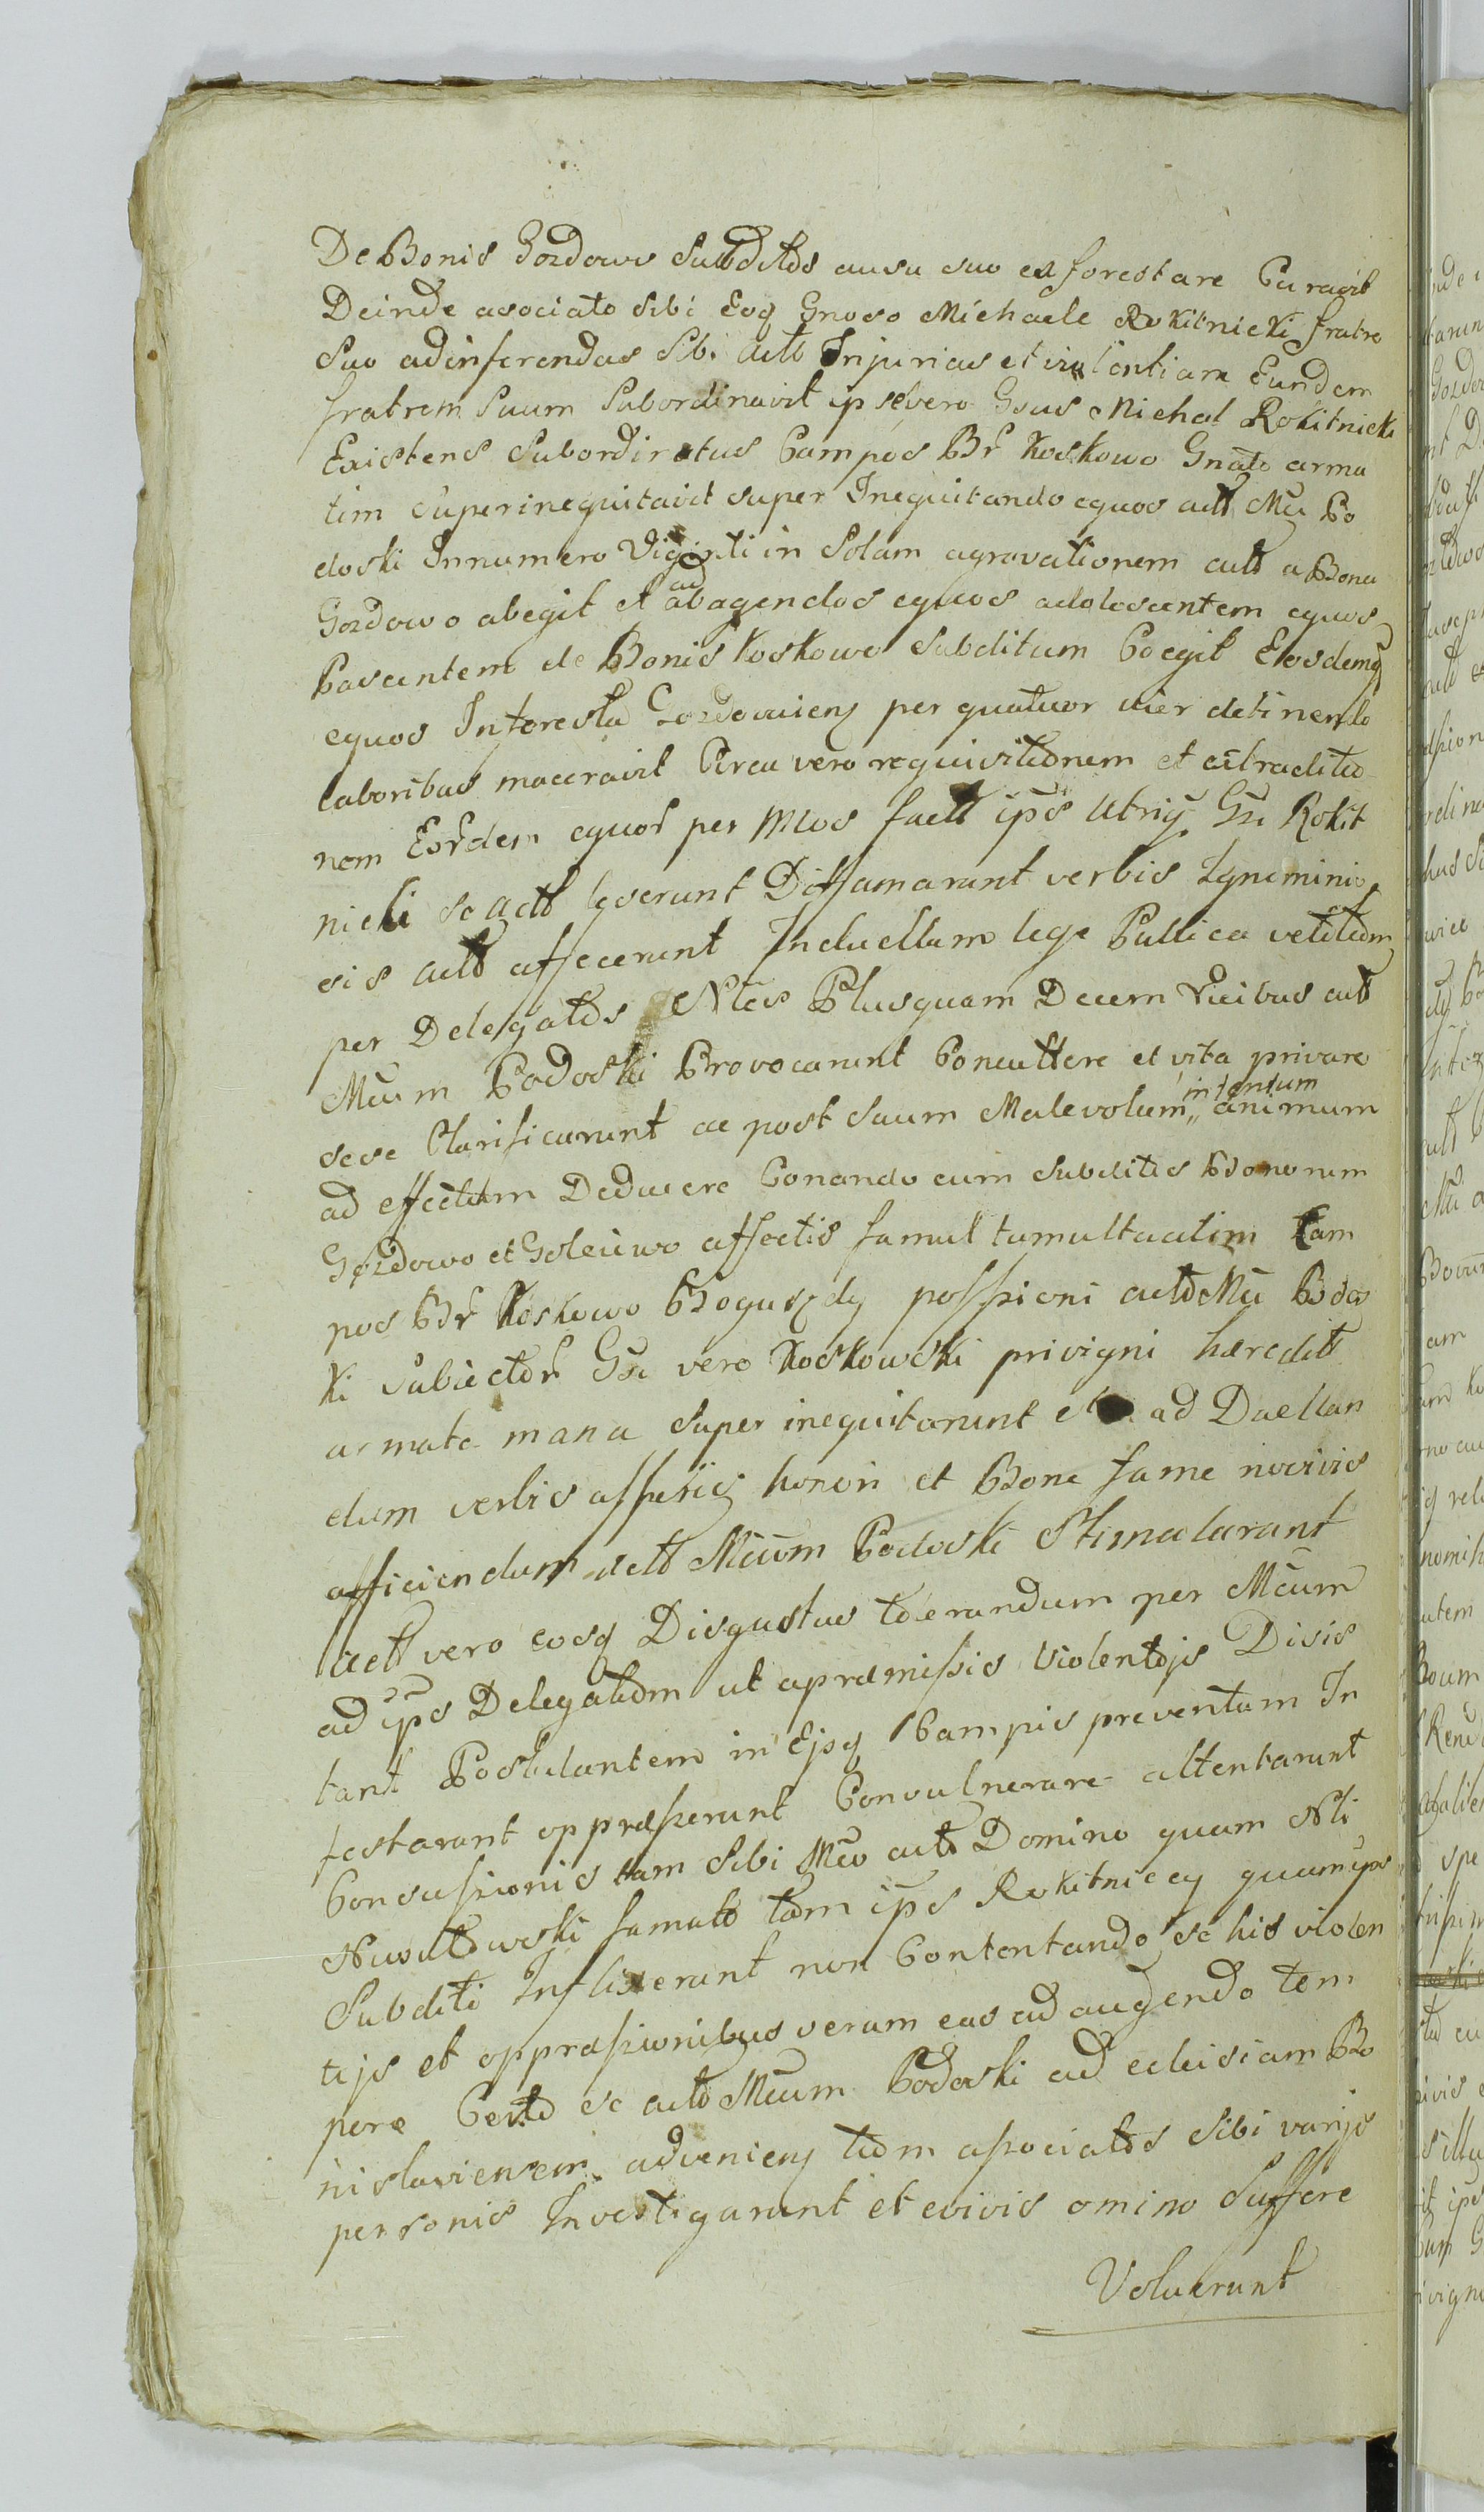 De Bonis Gozdowo Subditos ausu suo exforestare Curavit
Deinde asociato sibi Eoq Gnoso Michaele Rokitnicki fratre
Suo adinferendas sibi actt Injurias et violentiam Eundem
fratrem Suum Subordinavit ipse vero Gsus Michal Rokitnicki
Existens Subordinatus Campos Br Koskowo Gnato arma
tim superinequitavit super Inequitando equos actt Mci Po
doski Innumero Viginti in Solam agravationem actt a Bona
Gozdowo abegit et ad abagendos equos adolescentem equos
Pascentem de Bonis Koskowo Subditum Coegit Eosdemq
equos Inforesta Gozdoviens per quatuor vier detinendo
laboribus maceravit Circa vero requisitionem et extradito
nem Eordem equor per Mcos fact ips utriq Gsi Rokit
nicki se actt leserunt Diffamarunt verbis Ignominio
sis actt affecerunt Induellum lege Publica vetitum
per Delegatos Nles Plusquam Decem Vicibus actt
Mcum Podoski Provocarunt Concuttere et vita privare
sese Clarificarunt ac post suum Malevolum intentum animum
ad effectum Deducere Conando cum Subditis Bonorum
Gozdowo et Goleiewo affectis famul tumultuatim Cam
pos Br Koskowo Boguszdy possioni actt Mci Podos
ki subiector Gsi vero Koskowski privigni hæredit
armata manu super inequitarunt et ad Duellan
dum verbis asperis honori et Bone fame nocivis
afficiendum actt Mcum Podoski Stimularunt
actt vero eosq Disgustus tolerandum per Mcum
ad ips Delegatum ut apræmissis Violentijs Disis
tant Postulantem in Ejsq Campis preventum In
festarunt oppræserunt Convulnerare attentarunt
Concussionis tam Sibi Mco actt Domino quam Nli
Nuwultowski famato tam ips Rokitniccy quam ips
Subditi Inflixerunt non Contentando se his violen
tijs et oppræsionibus verum eas ad augendo tem
pore Certo se actt Mcum Podoski ad eclesiam Bo
nislaviensem adveniens tum asociatos Sibi varijs
personis Investigarunt et evivis omino Suffere
Voluerunt